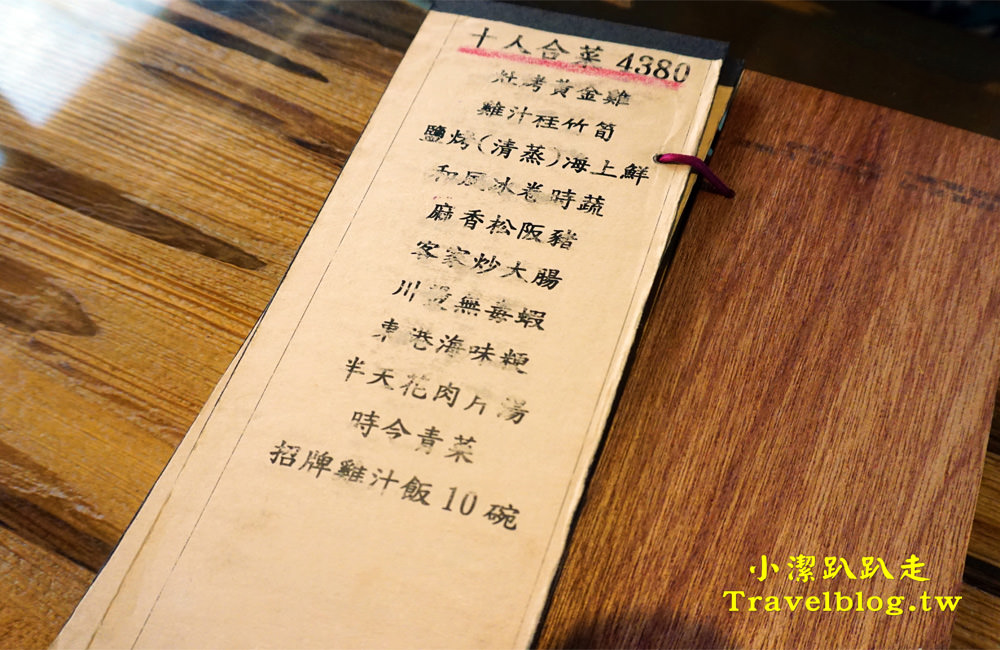 十人合菜 4380
灶考黃金雞
雞汁桂竹筍
鹽烤(清蒸)海上鮮
和風冰卷時蔬
麻香松阪豬
客家炒大腸
川燙無毒蝦
東港海味粳
半天花肉片湯
時令青菜
招牌雞汁飯 10 碗
小潔趴趴走
Travelblog.tw